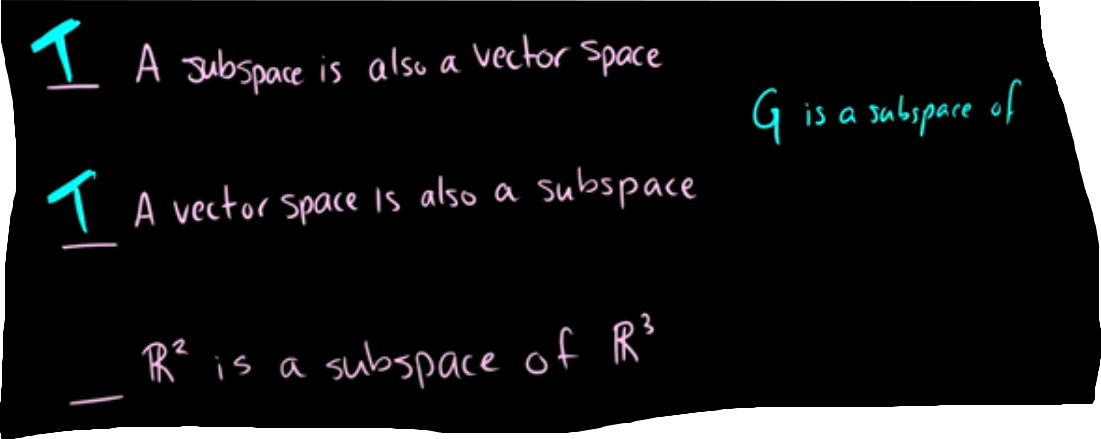 T A subspace is also a vector space
G is a subspace of
T A vector space is also a subspace
_ ℝ² is a subspace of ℝ³